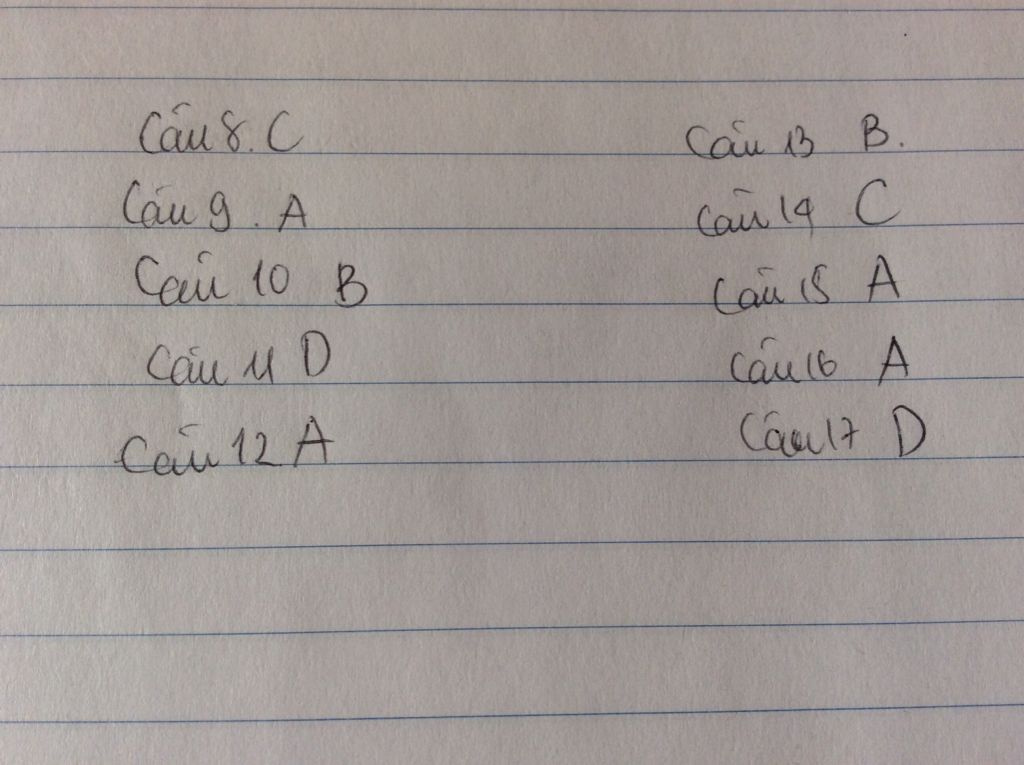 Câu 8. C
Câu 9. A
Câu 10 B
Câu 11 D
Câu 12 A
Câu 13 B.
Câu 14 C
Câu 15 A
Câu 16 A
Câu 17 D